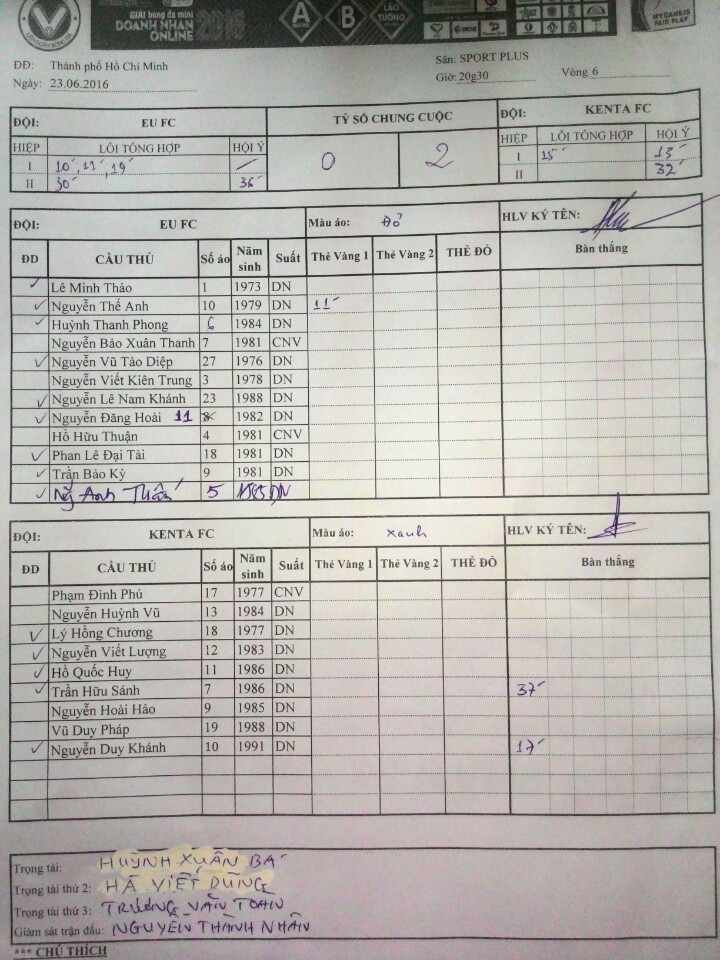 GIẢI bóng đá mini
DOANH NHÂN 2016
ONLINE
A B LÃO TƯỚNG
MYGAMES FAIR PLAY
DĐ: Thành phố Hồ Chí Minh
Sân: SPORT PLUS
Ngày: 23.06.2016
Giờ: 20g30 Vòng 6
ĐỘI: EU FC TỶ SỐ CHUNG CUỘC ĐỘI: KENTA FC
HIỆP LỖI TỔNG HỢP HỘI Ý 0 2 HIỆP LỖI TỔNG HỢP HỘI Ý
I 10', 11', 19' / I 15' 13'
II 30' 36' II 32'
ĐỘI: EU FC Màu áo: Đỏ HLV KÝ TÊN:
ĐD CẦU THỦ Số áo Năm sinh Suất Thẻ Vàng 1 Thẻ Vàng 2 THẺ ĐỎ Bàn thắng
✓ Lê Minh Thảo 1 1973 DN
✓ Nguyễn Thế Anh 10 1979 DN 11'
✓ Huỳnh Thanh Phong 6 1984 DN
Nguyễn Bảo Xuân Thanh 7 1981 CNV
✓ Nguyễn Vũ Tảo Diệp 27 1976 DN
Nguyễn Viết Kiên Trung 3 1978 DN
✓ Nguyễn Lê Nam Khánh 23 1988 DN
✓ Nguyễn Đăng Hoài 11 8 1982 DN
Hồ Hữu Thuận 4 1981 CNV
✓ Phan Lê Đại Tài 18 1981 DN
✓ Trần Bảo Kỳ 9 1981 DN
✓ Ng Anh 5 DN
ĐỘI: KENTA FC Màu áo: xanh HLV KÝ TÊN:
ĐD CẦU THỦ Số áo Năm sinh Suất Thẻ Vàng 1 Thẻ Vàng 2 THẺ ĐỎ Bàn thắng
Phạm Đình Phú 17 1977 CNV
Nguyễn Huỳnh Vũ 13 1984 DN
✓ Lý Hồng Chương 18 1977 DN
✓ Nguyễn Viết Lượng 12 1983 DN
✓ Hồ Quốc Huy 11 1986 DN
✓ Trần Hữu Sánh 7 1986 DN 37'
Nguyễn Hoài Hảo 9 1985 DN
Vũ Duy Pháp 19 1988 DN
✓ Nguyễn Duy Khánh 10 1991 DN 17'
Trọng tài: HUỲNH XUÂN BÁ
Trọng tài thứ 2: HÀ VIẾT DŨNG
Trọng tài thứ 3: TRƯƠNG VĂN TOÀN
Giám sát trận đấu: NGUYỄN THÀNH NHÂN
*** CHÚ THÍCH